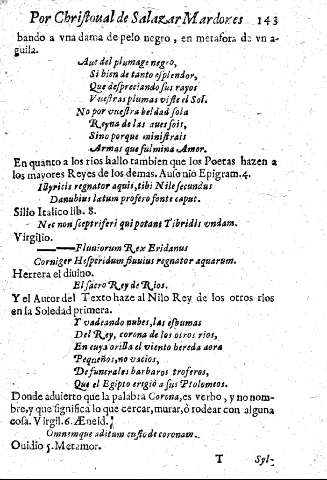 Por Christoual de Salazar Mardones 143
bando a vna dama de pelo negro, en metafora de vn a-
guila.
Aue del plumage negro,
Si bien de tanto esplendor,
Que despreciando sus rayos
Vuestras plumas viste el Sol.
No por vuestra beldad sola
Reyna de las aues sois,
Sino porque ministrais
Armas que fulmina Amor.
En quanto a los rios hallo tambien que los Poetas hazen a
los mayores Reyes de los demas. Ausonio Epigram. 4.
Illyricis regnator aquis, tibi Nile secundus
Danubius latum profero fonte caput.
Silio Italico lib. 8.
Nec non sceptriferi qui potant Tibridis vndam.
Virgilio.
Fluuiorum Rex Eridanus
Corniger Hesperidum fluuius regnator aquarum.
Herrera el diuino.
El sacro Rey de Rios.
Y el Autor del Texto haze al Nilo Rey de los otros rios
en la Soledad primera.
Y vadeando nubes, las espumas
Del Rey, corona de los otros rios,
En cuya orilla el viento hereda aora
Pequeños, no vacios,
De funerales barbaros trofeos,
Que el Egipto erigiò a sus Ptolomeos.
Donde aduierto que la palabra Corona, es verbo, y no nom-
bre, y que significa lo que cercar, murar, ò rodear con alguna
cosa. Virgil. 6. Æneid.
Omnemque aditum custode coronam.
Ouidio 5. Metamor.
T Syl-